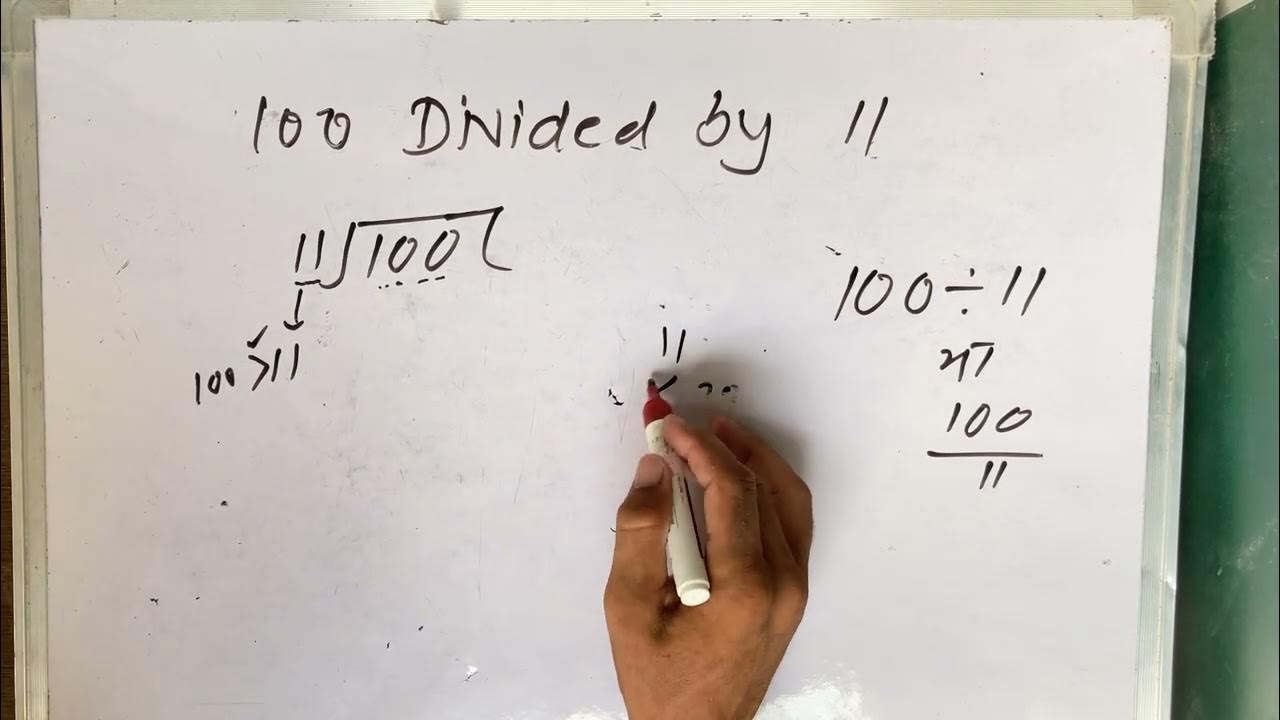 100 Divided by 11
11)100(
100 > 11
11
100 ÷ 11
या
100
11